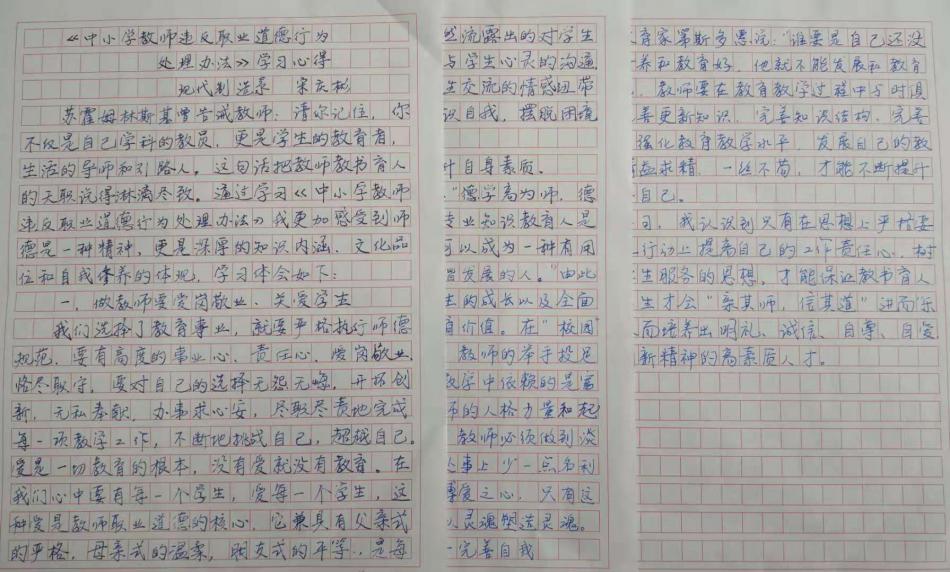 《中小学教师违反职业道德行为
处理办法》学习心得
现代制造系 宋庆彬
苏霍姆林斯基曾告诫教师：请你记住，你
不仅是自己学科的教员，更是学生的教育者，
生活的导师和引路人。这句话把教师教书育人
的天职说得淋漓尽致。通过学习《中小学教师
违反职业道德行为处理办法》我更加感受到师
德是一种精神，更是深厚的知识内涵、文化品
位和自我修养的体现，学习体会如下：
一、做教师要爱岗敬业、关爱学生
我们选择了教育事业，就要严格执行师德
规范，要有高度的事业心、责任心、爱岗敬业。
恪尽职守，要对自己的选择无怨无悔，开拓创
新，无私奉献，办事求心安，尽职尽责地完成
每一项教学工作，不断地挑战自己，超越自己。
爱是一切教育的根本，没有爱就没有教育。在
我们心中要有每一个学生，爱每一个学生，这
种爱是教师职业道德的核心，它兼具有父亲式
的严格，母亲式的温柔，朋友式的平等，是每
然流露出的对学生
与学生心灵的沟通
生交流的情感纽带
识自我，摆脱困境
升自身素质。
“德学高为师，德
专业知识教育人是
可以成为一种有用
谐发展的人。”由此
生的成长以及全面
育价值。在“校园”
教师的举手投足
教学中依赖的是富
师的人格力量和起
教师必须做到淡
事上少一点名利
博爱之心，只有这
以灵魂塑造灵魂。
完善自我
育家第斯多惠说：“谁要是自己还没
养和教育好，他就不能发展和教育
，教师要在教育教学过程中与时俱
善更新知识，完善知识结构，完善
强化教育教学水平，发展自己的教
益求精，一丝不苟，才能不断提升
自己。
司，我认识到只有在思想上严格要
行动上提高自己的工作责任心，树
生服务的思想，才能保证教书育人
生才会“亲其师，信其道”进而“乐
而培养出明礼、诚信、自尊、自爱
新精神的高素质人才。